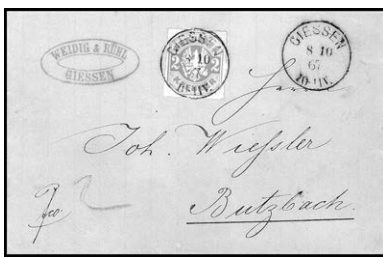 WEIDIG & RÜHL
GIESSEN
GIESSEN
8 10
2 2
GIESSEN
8 10
67
Herrn
Joh. Wiessler
Butzbach.
2